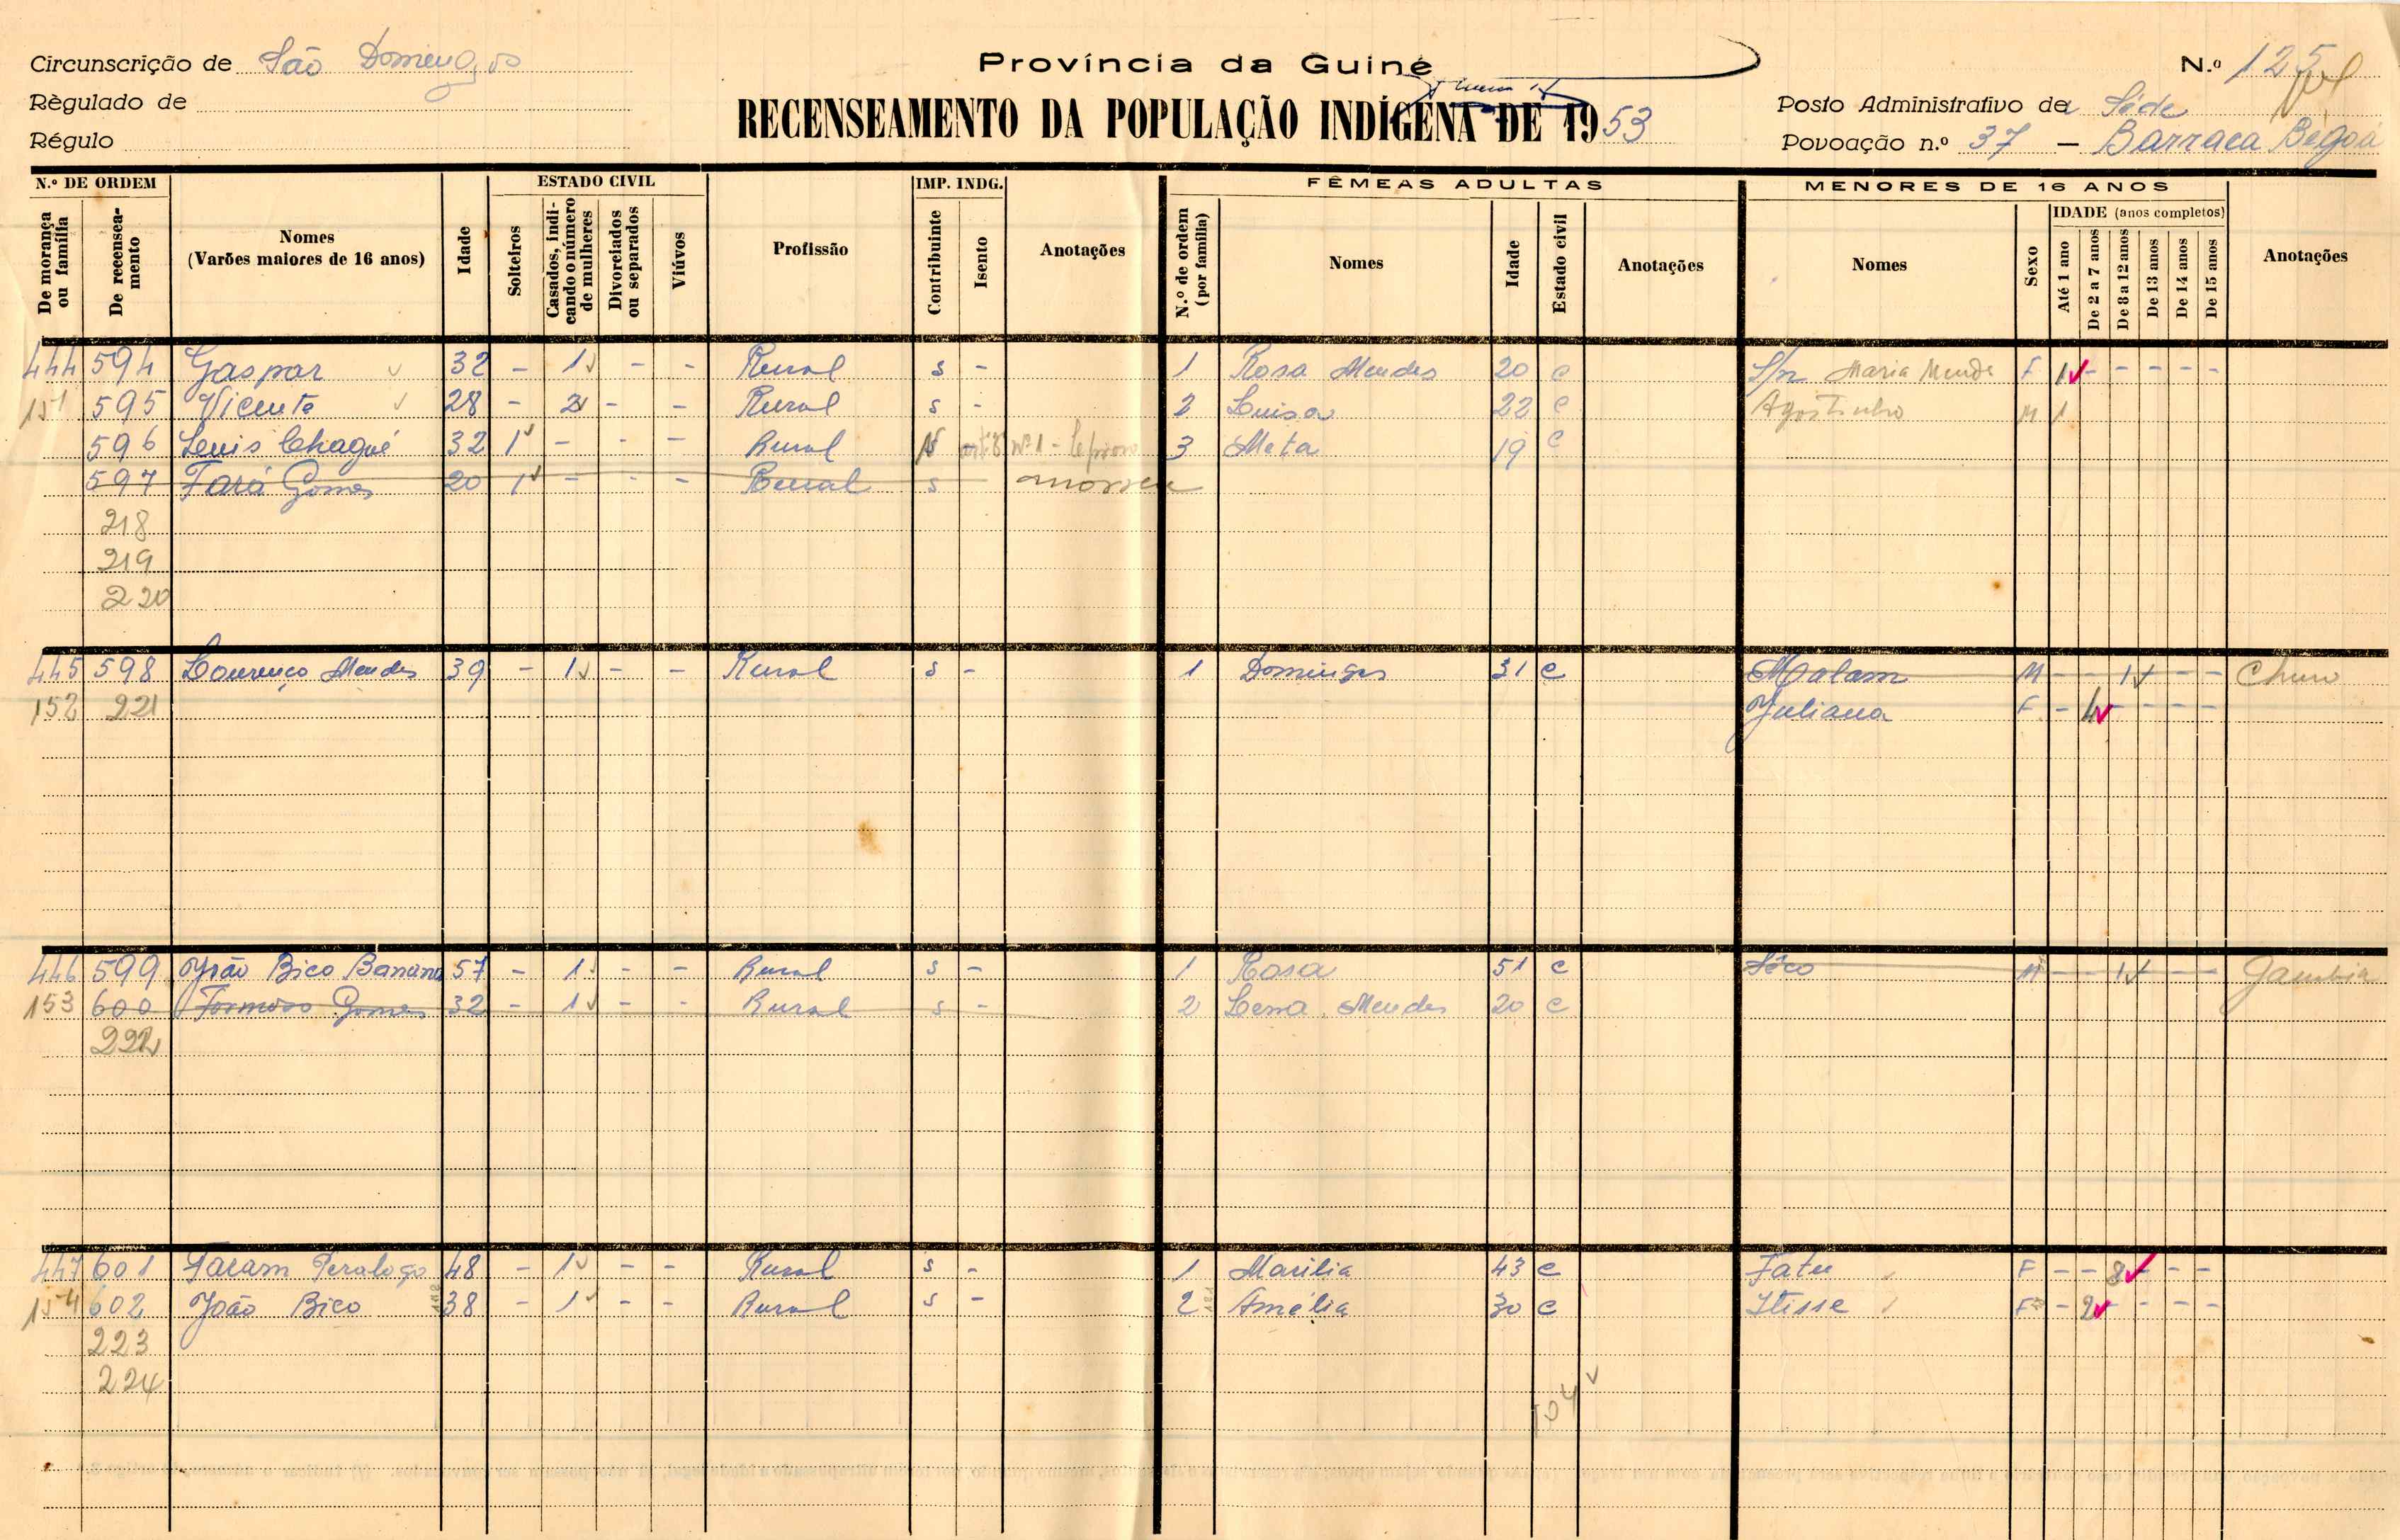 Circunscrição de São Domingos
Règulado de
Régulo
Província da Guiné
RECENSEAMENTO DA POPULAÇÃO INDÍGENA DE 1953
N.º 125
Posto Administrativo da Séde
Povoação n.º 37 — Barraca Bégoá
N.º DE ORDEM
De morança ou família
De recenseamento
Nomes
(Varões maiores de 16 anos)
Idade
ESTADO CIVIL
Solteiros
Casados, indicando o número de mulheres
Divorciados ou separados
Viúvos
Profissão
IMP. INDG.
Contribuinte
Isento
Anotações
FÊMEAS ADULTAS
N.º de ordem (por família)
Nomes
Idade
Estado civil
Anotações
MENORES DE 16 ANOS
Nomes
Sexo
IDADE (anos completos)
Até 1 ano
De 2 a 7 anos
De 8 a 12 anos
De 13 anos
De 14 anos
De 15 anos
Anotações
444 594 Gaspar 32 - 1 - - Rural s - 1 Rosa Mendes 20 c S/n Maria Mende F 1 - - - - -
151 595 Vicente 28 - 2 - - Rural s - 2 Luisa 22 c Agostinho M 1
596 Luis Chagué 32 1 - - - Rural nº 1 - Leproso 3 Meta 19 c
597 Fará Gomes 20 1 - - - Rural s morreu
218
219
220
445 598 Lourenço Mendes 39 - 1 - - Rural s - 1 Domingas 31 c Malam M - - 1 - - - Churo
152 221 Juliana F - 4 - - - -
446 599 João Bico Banana 57 - 1 - - Rural s - 1 Rosa 51 c Sêco M - - 1 - - - Gambia
153 600 Formoso Gomes 32 - 1 - - Rural s - 2 Lena Mendes 20 c
222
447 601 Faram 48 - 1 - - Rural s - 1 Marilia 43 c Fatu F - - 8 - - -
154 602 João Bico 38 - 1 - - Rural s - 2 Amélia 30 c Itisse F - 2 - - - -
223
224
104